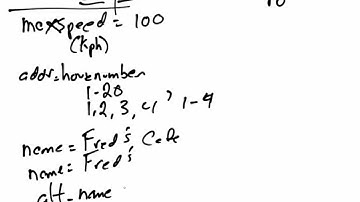 maxspeed = 100
(kph)
addr:housenumber
1-20
1,2,3,4 ? 1-4
name = Fred's Cafe
name = Fred's
alt_name